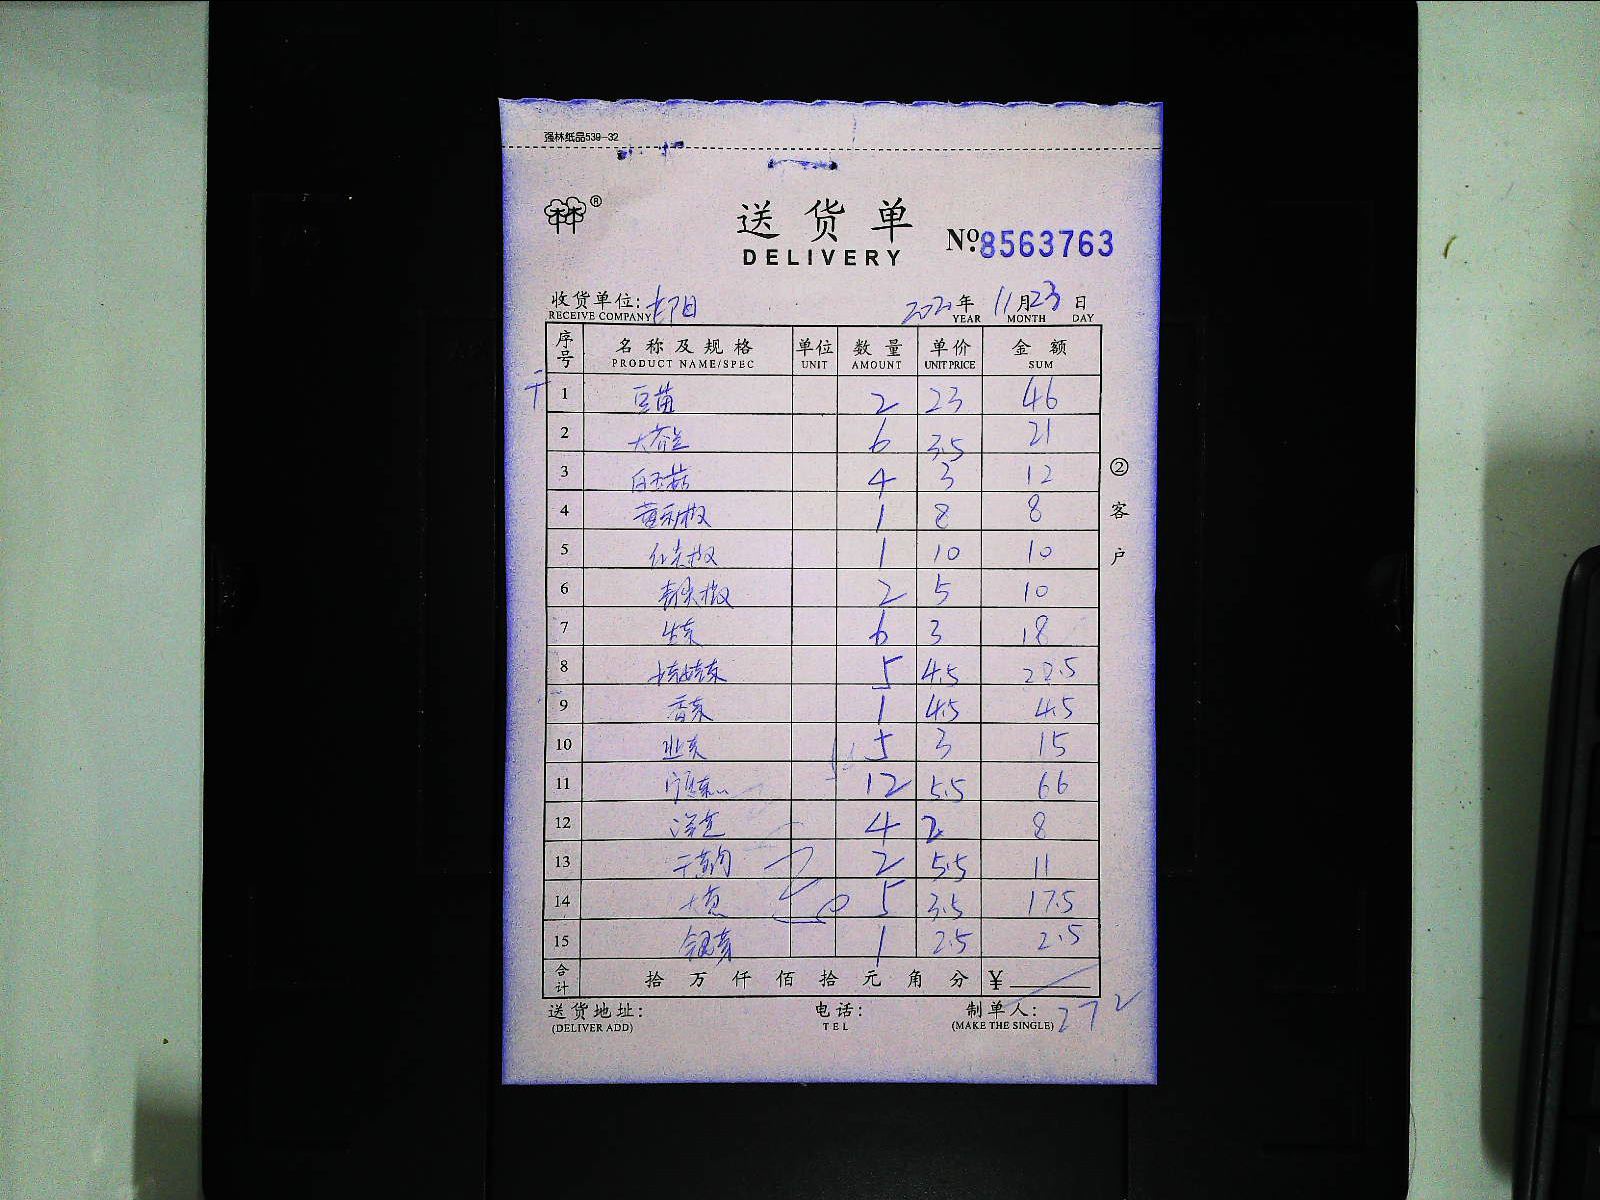 强林纸品539-32
林林®
送货单
DELIVERY
№8563763
收货单位:
RECEIVE COMPANY
2021年 11月23日
YEAR MONTH DAY
序号 名称及规格 单位 数量 单价 金额
PRODUCT NAME/SPEC UNIT AMOUNT UNIT PRICE SUM
1 豆苗 2 23 46
2 大芥兰 6 3.5 21
3 白玉菇 4 3 12
4 黄彩椒 1 8 8
5 红尖椒 1 10 10
6 青尖椒 2 5 10
7 生菜 6 3 18
8 5 4.5 22.5
9 香菜 1 4.5 4.5
10 5 3 15
11 12 5.5 66
12 4 2 8
13 2 5.5 11
14 大葱 5 3.5 17.5
15 银芽 1 2.5 2.5
合计 拾 万 仟 佰 拾 元 角 分 ¥
272
送货地址: 电话: 制单人:
(DELIVER ADD) TEL (MAKE THE SINGLE)
②客户